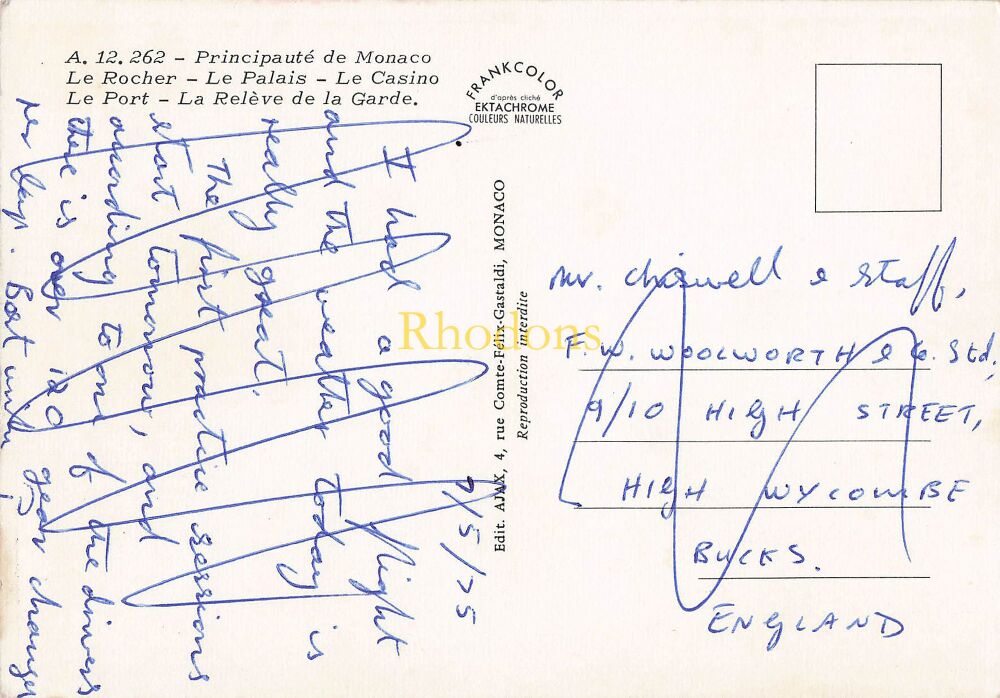 A. 12. 262 – Principauté de Monaco
Le Rocher – Le Palais – Le Casino
Le Port – La Relève de la Garde.
FRANKCOLOR
d'après cliché
EKTACHROME
COULEURS NATURELLES
Edit. AJAX, 4, rue Comte-Félix-Gastaldi, MONACO
Reproduction interdite
Rhodons
7/5/75
I had a good flight
and the weather today is
really great.
The first practice sessions
start tomorrow, and
according to one of the drivers
there is over 120 gear changes
per lap. Best wishes
Mr. Chiswell & Staff,
F. W. WOOLWORTH & Co. Ltd,
9/10 HIGH STREET,
HIGH WYCOMBE
BUCKS.
ENGLAND